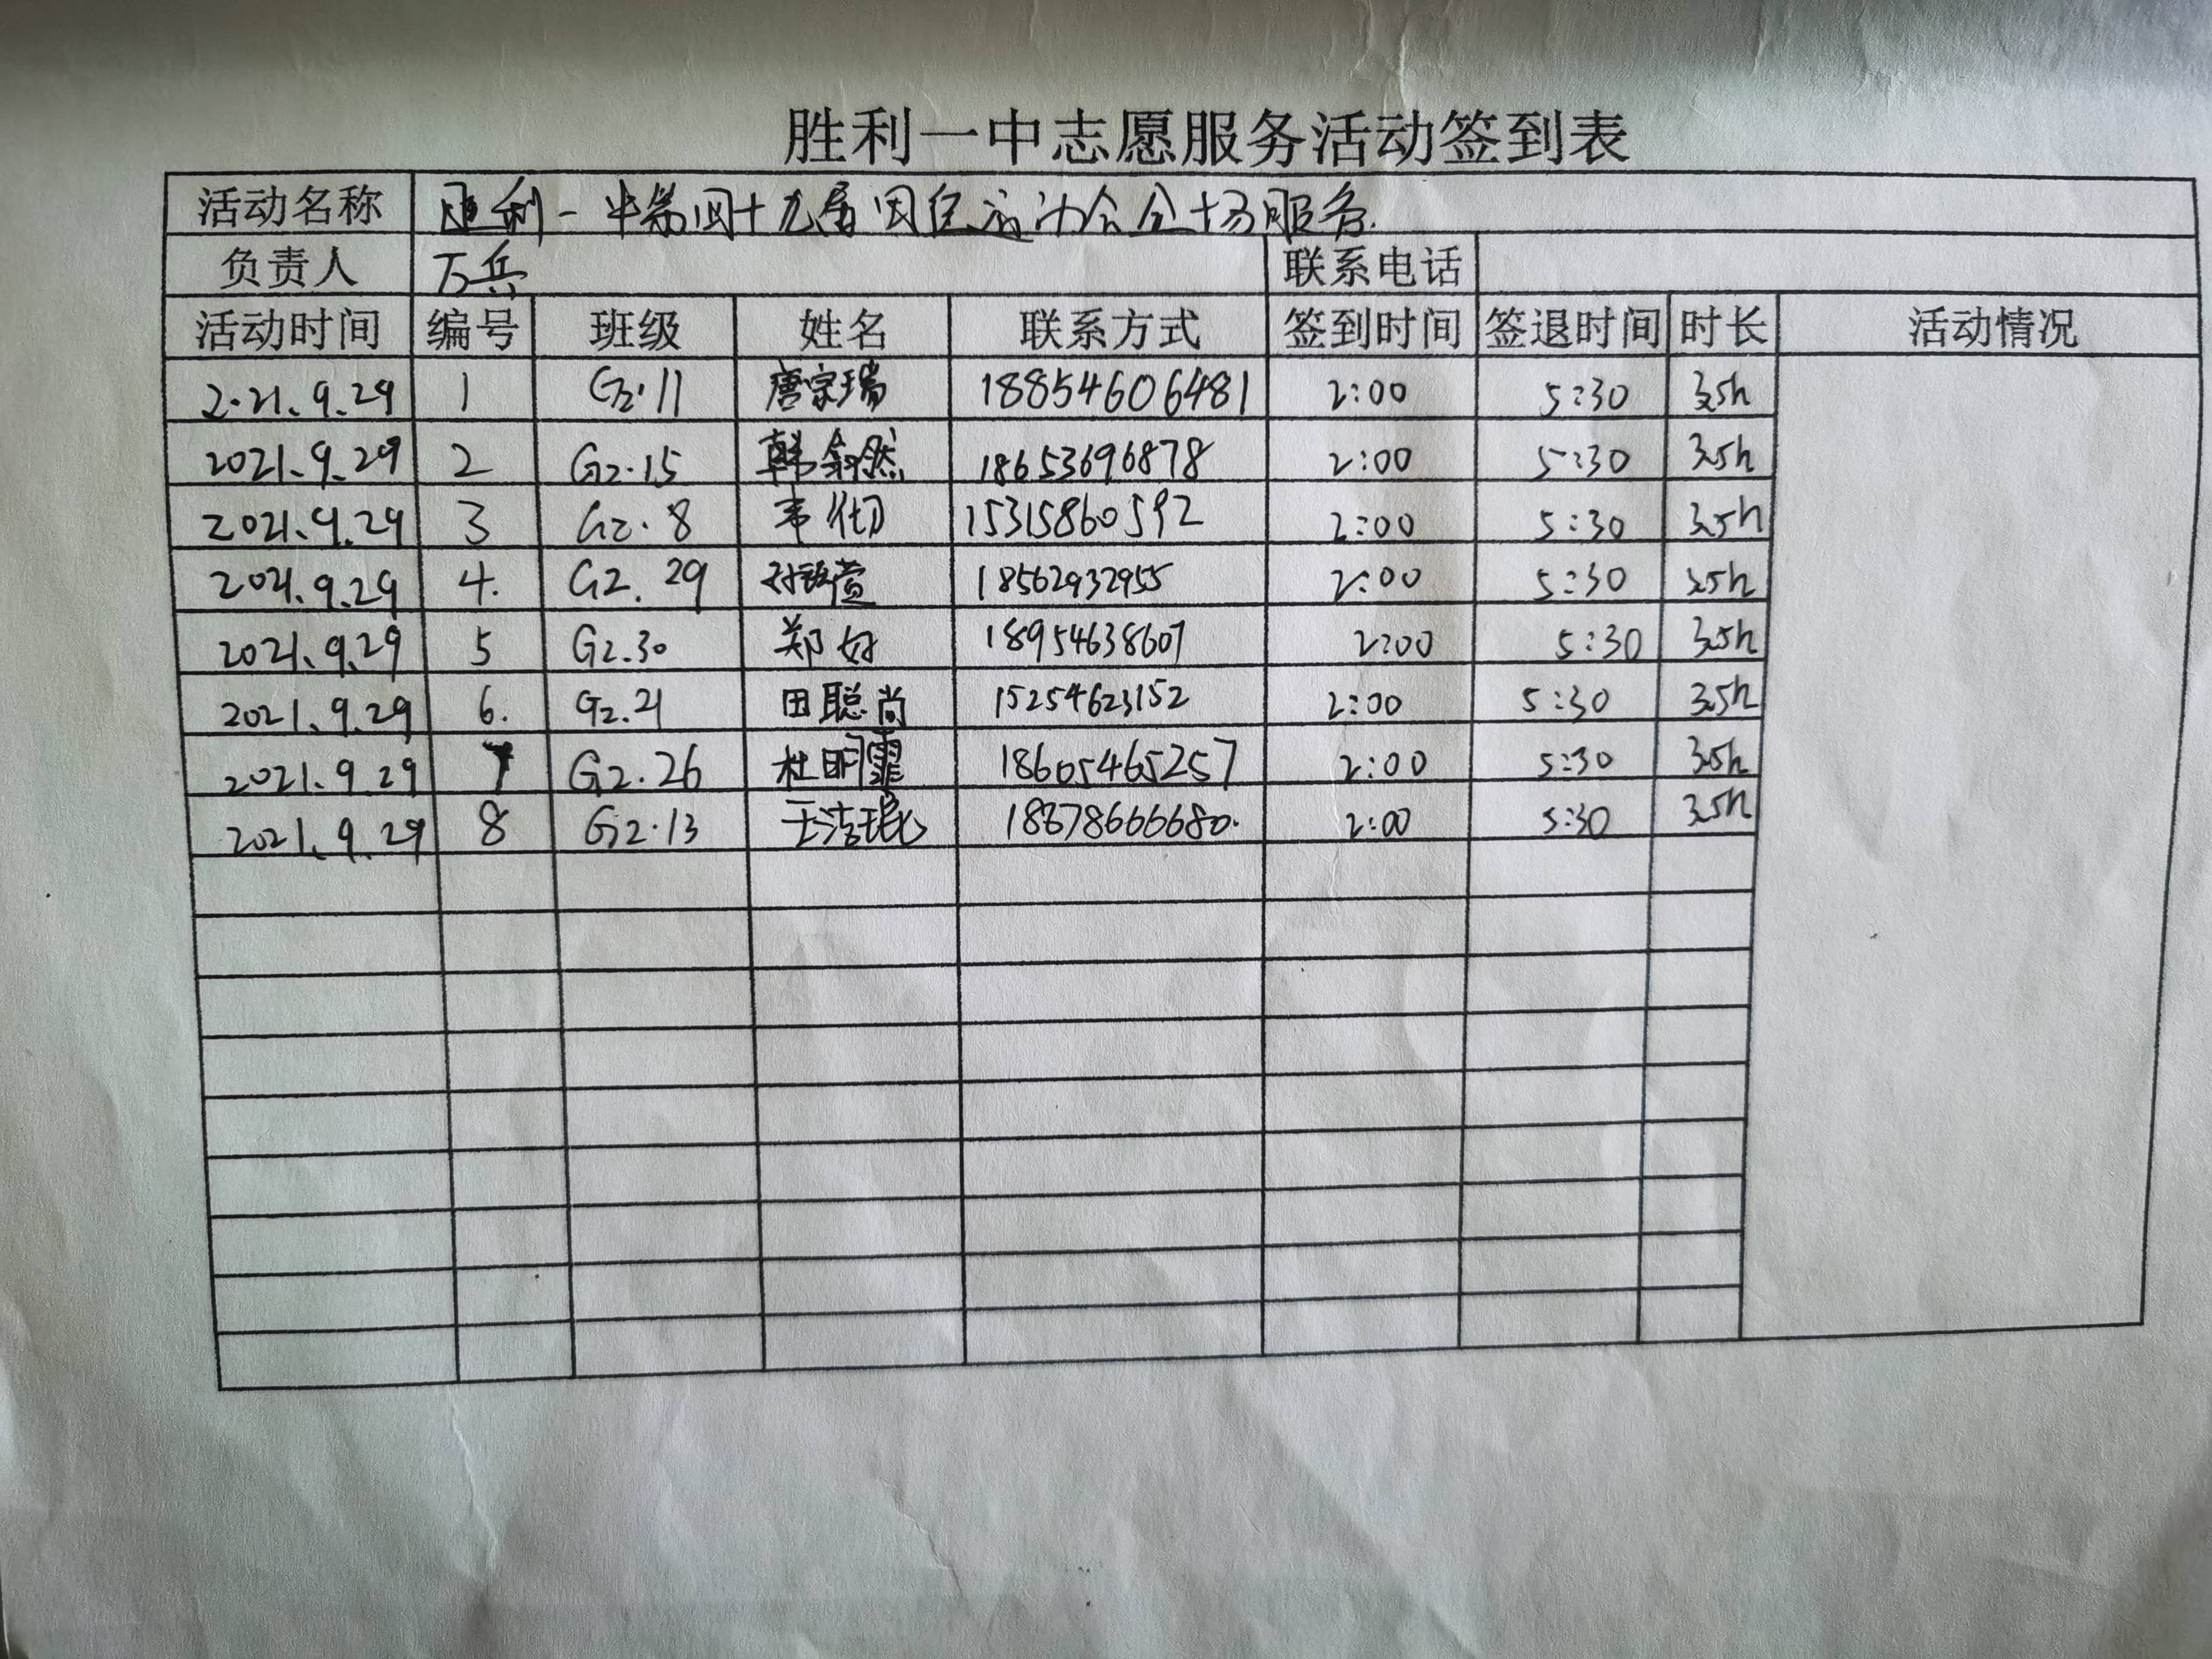 胜利一中志愿服务活动签到表
活动名称 胜利一中第四十九届田径运动会全场服务.
负责人 万兵 联系电话
活动时间 编号 班级 姓名 联系方式 签到时间 签退时间 时长 活动情况
2.21.9.29 1 G2.11 唐宗瑞 18854606481 2:00 5:30 3.5h
2021.9.29 2 G2.15 韩 然 18653696878 2:00 5:30 3.5h
2021.9.29 3 G2.8 15315860592 2:00 5:30 3.5h
2021.9.29 4. G2.29 萱 18562932955 2:00 5:30 3.5h
2021.9.29 5 G2.30 郑好 18954638607 2:00 5:30 3.5h
2021.9.29 6. G2.21 田聪尚 15254623152 2:00 5:30 3.5h
2021.9.29 7 G2.26 杜明霏 18605465257 2:00 5:30 3.5h
2021.9.29 8 G2.13 王洁琨 18678666680. 2:00 5:30 3.5h